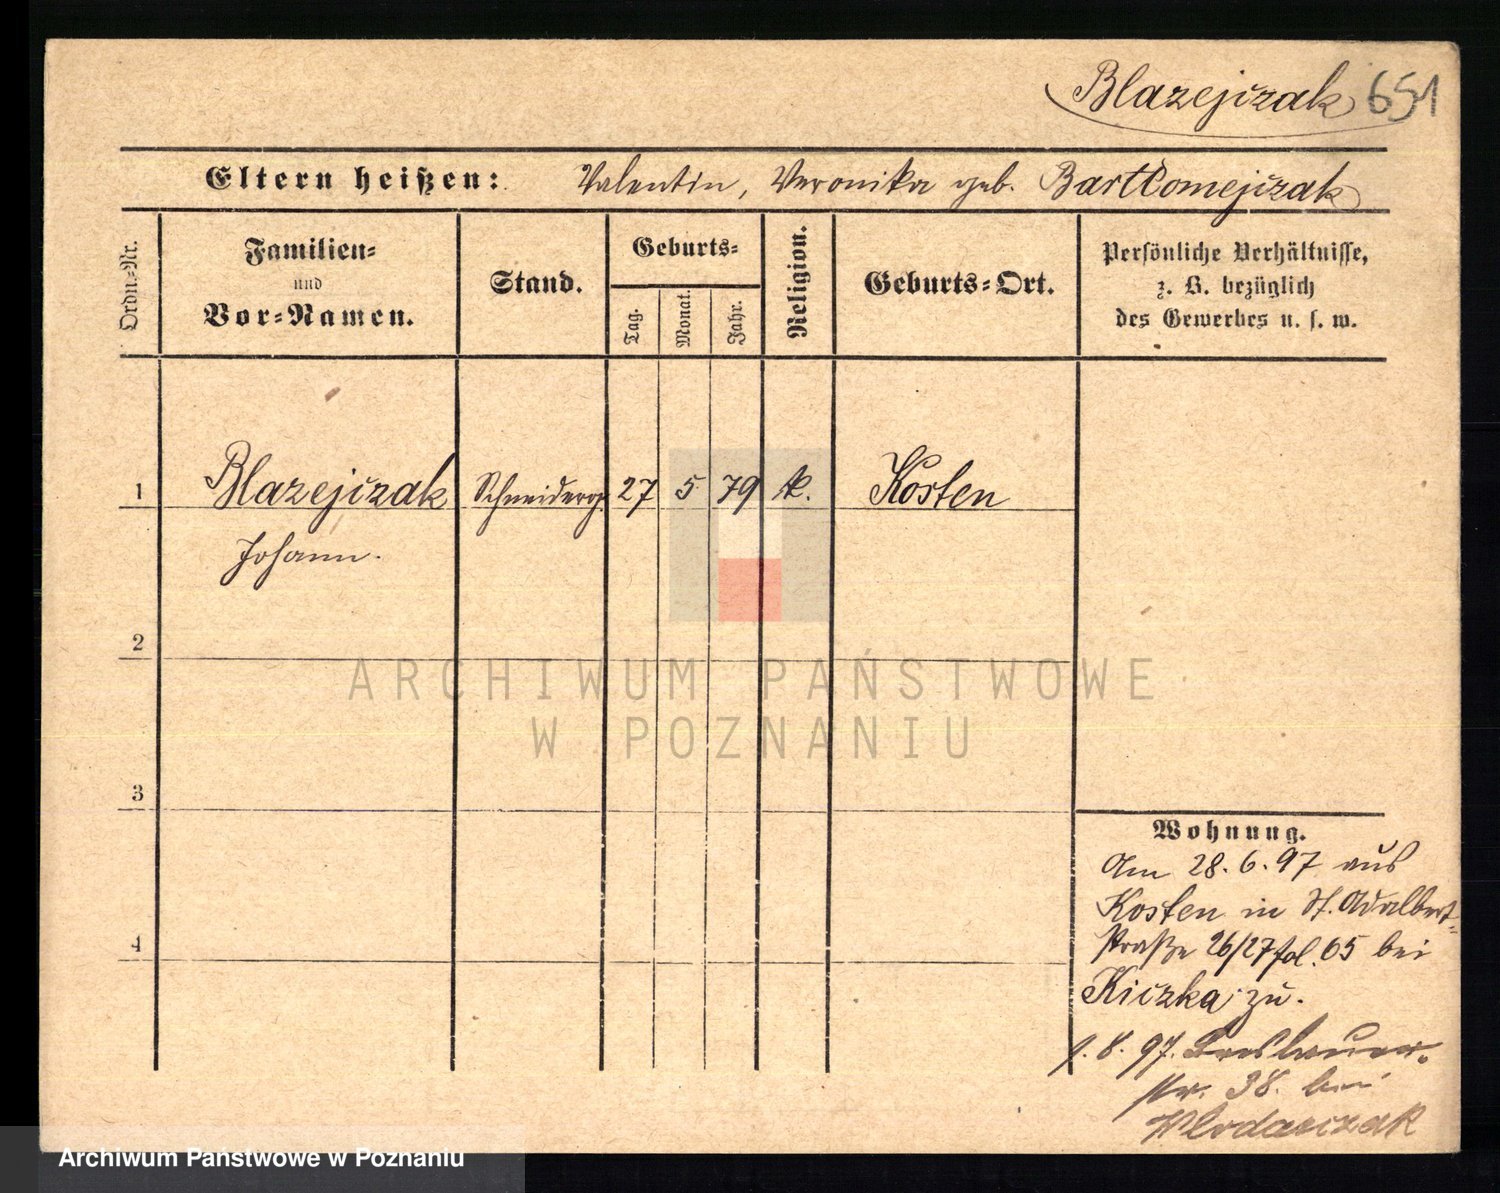 Blazejczak 651
Eltern heißen: Valentin, Veronika geb. Bartlomejczak
Ordn.-Nr.
Familien-
und
Vor-Namen.
Stand.
Geburts-
Tag.
Monat.
Jahr.
Religion.
Geburts-Ort.
Persönliche Verhältnisse,
z. B. bezüglich
des Gewerbes u. s. w.
1 Blazejczak Schneiderg. 27 5 79 k. Kosten
Johann.
2
ARCHIWUM PAŃSTWOWE
W POZNANIU
3
4
Wohnung.
Am 28. 6. 97 aus
Kosten in St. Adalbert-
straße 26/27 fol. 65 bei
Kiczka zu.
1. 8. 97. Breslauer-
str. 38. bei
Wlodarczak
Archiwum Państwowe w Poznaniu